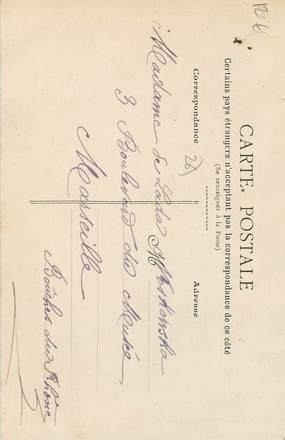 CARTE POSTALE
Certains pays étrangers n'acceptant pas la correspondance de ce côté
(Se renseigner à la Poste)
Correspondance
Adresse
Madame de
3 Boulevard du Musée
Marseille
Bouches du Rhône